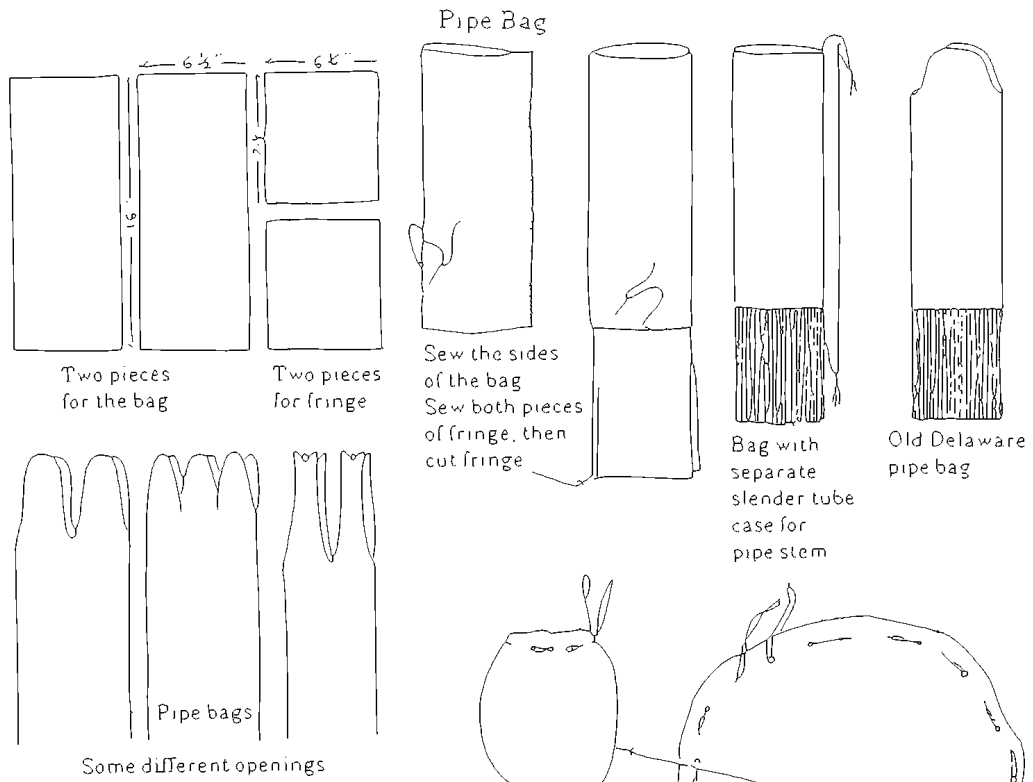 Pipe Bag
6 ½"
6 ½"
16"
Two pieces
for the bag
Two pieces
for fringe
Sew the sides
of the bag
Sew both pieces
of fringe, then
cut fringe
Bag with
separate
slender tube
case for
pipe stem
Old Delaware
pipe bag
Pipe bags
Some different openings